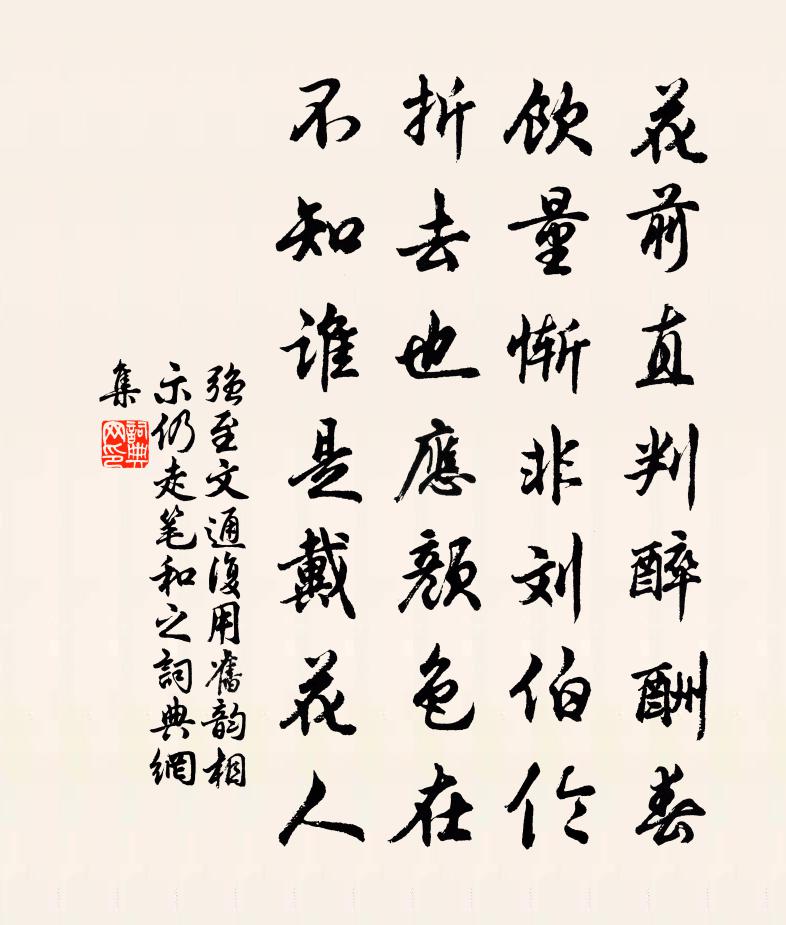 花前直判醉酬春
飲量慚非刘伯伶
折去也應顏色在
不知谁是戴花人
强至文通復用舊韵相
示仍走笔和之詞典網
集
詞典
网印